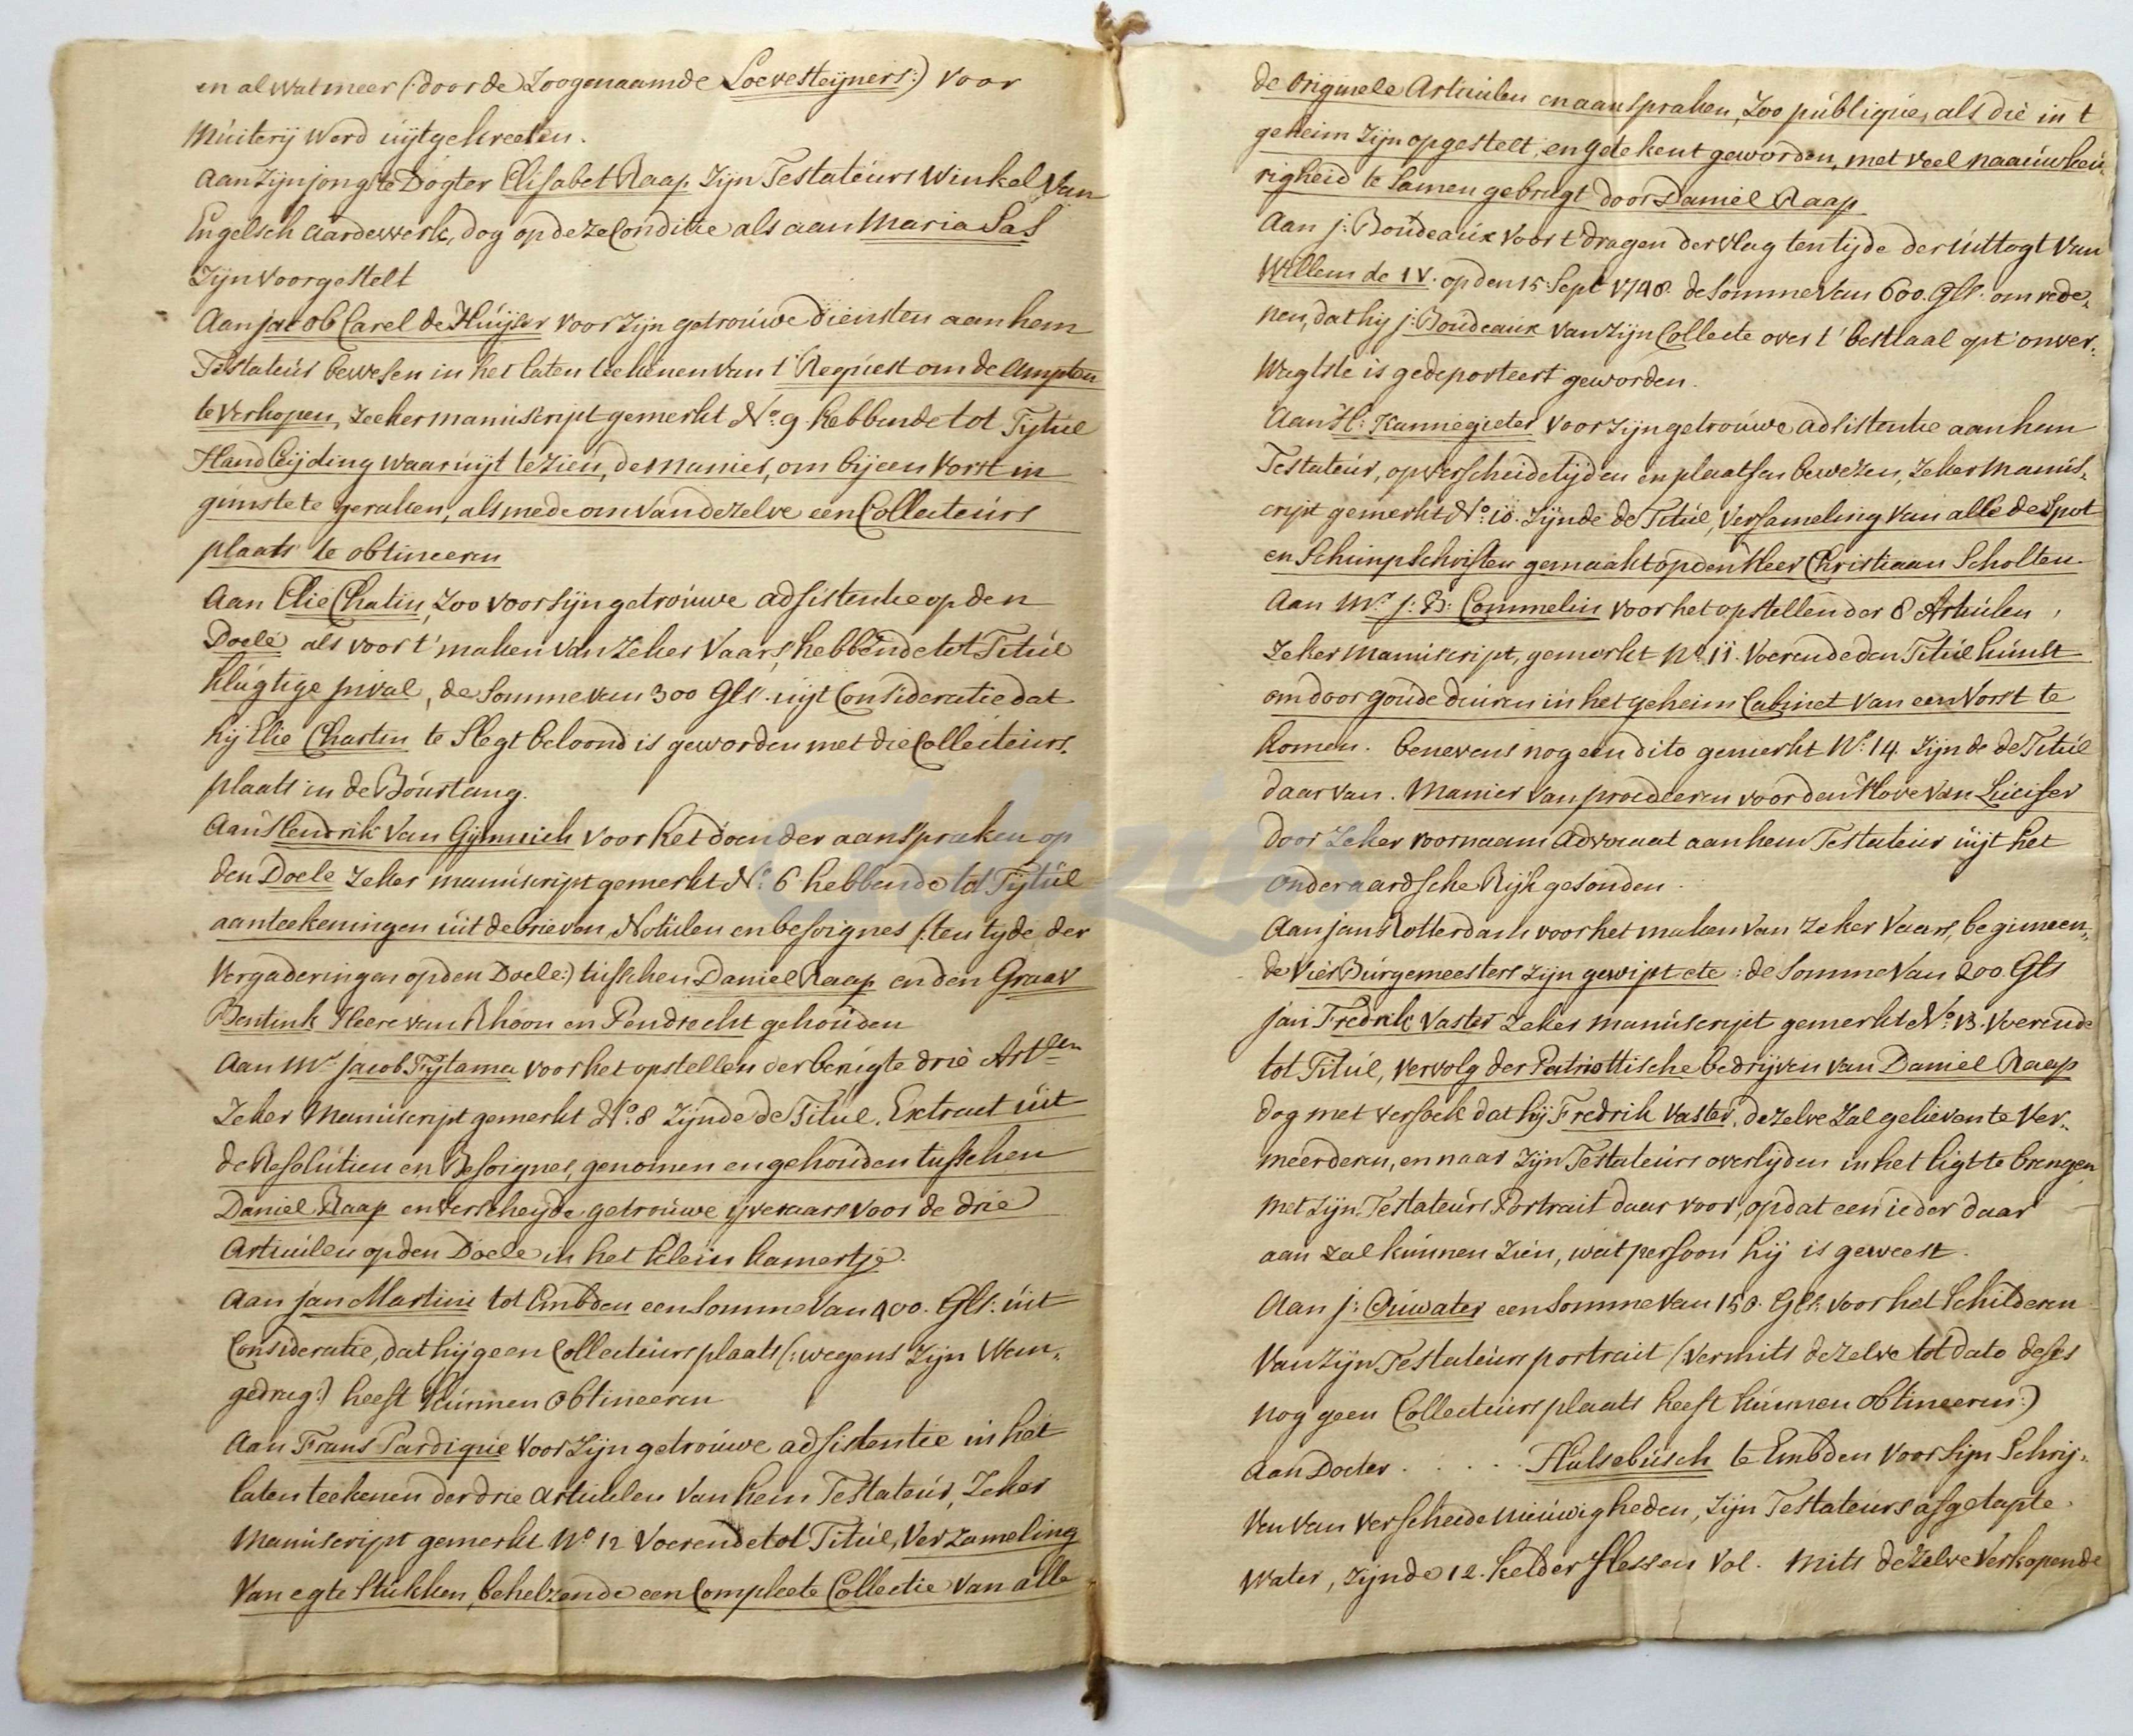 en al wat meer (: door de Zoogenaamde Loevesteijners :) voor
Muiterij werd uijtgekreeten.
Aan Zijn jongste Dogter Elisabet Raap Zijn Testateurs Winkel van
Engelsch Aardewerk, dog op deze Conditie als aan Maria Sas
Zijn voorgestelt
Aan Jacob Carel de Huijser voor Zijn getrouwe diensten aan hem
Testateur bewesen in het laten teekenen van t' Request om de Ampten
te verkopen, Zeeker manuscript gemerkt No. 9. hebbende tot Tijtul
Handleijding waar uijt te zien, de manier, om bij een Vorst in
gunste te geraken, als mede om van dezelve een Collecteurs
plaats te obtineeren
Aan Elie Chatin, Zoo voor sijn getrouwe adsistentie op den
Doele als voor t' maken van Zeker Vaars, hebbende tot Titul
klugtige pival, de somme van 300 Gls. uijt Consideratie dat
hij Elie Chartin te slegt beloond is geworden met die Collecteurs,
plaats in de Bourtang.
Aan Hendrik van Gijmnich voor het doen der aanspraken op
den Doele Zeker manuscript gemerkt No. 6 hebbende tot Tijtul
aanteekeningen uit de brieven, Notulen en besoignes (: ten tyde der
vergaderingen op den Doele :) tusschen Daniel Raap en den Graav
Bentink Heere van Rhoon en Pendrecht gehouden
Aan Mr. Jacob Tijtama voor het opstellen der berugte drie Arten
Zeker Manuscript gemerkt No. 8 Zijnde de Titul. Extract uit
de Resolutien en Besoignes, genomen en gehouden tusschen
Daniel Raap en verscheyde getrouwe ijveraars voor de drie
Articulen op den Doele in het klein kamertje.
Aan Jan Martini tot Embden een somme van 400. Gls. uit
Consideratie, dat hij geen Collecteurs plaats (: wegens Zijn Wan,,
gedrag :) heeft kunnen obtineeren
Aan Frans Pardique voor Zijn getrouwe adsistentie in het
laten teekenen der drie articulen van hem Testateur, Zeker
Manuscript gemerkt No. 12 Voerende tot Titul, Verzameling
Van egte stukken, behelzende een Compleete Collectie van alle
de Origineele Articulen en aanspraken, Zoo publique, als die in t
geheim Zijn opgestelt, en getekent geworden, met veel naauwkeu,,
righeid te samen gebragt door Daniel Raap
Aan J: Boudeaux voor t' dragen der vlag ten tijde der uittogt van
Willem de IV. op den 15 Sept. 1748. de somme van 600. Gls. om rede,,
nen, dat hij J: Boudeaux van Zijn Collecte over t' bestiaal op t' onver,,
wagtste is gedeporteert geworden.
Aan H: Kannegieter voor Zijn getrouwe adsistentie aan hem
Testateur, op verscheide tijden en plaatsen bewezen, Zeker manus,,
cript gemerkt No. 10. Zijnde de Titul, Versameling van alle de Spot
en Schimpschriften gemaakt op den Heer Christiaan Scholten.
Aan Mr. J: B: Commelin voor het opstellen der 8 Articulen,
Zeker manuscript, gemerkt No. 11. Voerende den Titul kunst
om door goude deuren in het geheim Cabinet van een Vorst te
komen. benevens nog een dito gemerkt No. 14. Zijnde de Titul
daar van. Manier van procedeeren voor den Hove van Lucifer
door Zeker voornaam Advocaat aan hem Testateur uijt het
onderaardsche Rijk gesonden.
Aan Jan Rotterdam voor het maken van Zeker Vaars, beginneen,,
de Vier Burgemeesters zijn gewipt etc: de somme van 200. Gls
Jan Fredrik Vaster Zeker manuscript gemerkt No. 13. Voerende
tot Titul, vervolg der Patriottische bedrijven van Daniel Raap
dog met versoek dat hij Fredrik Vaster, dezelve zal gelieven te ver,,
meerderen, en naar Zijn Testateurs overlijden in het ligt te brengen
met Zijn Testateurs Portrait daar voor, opdat een ieder daar
aan zal kunnen Zien, wat persoon hij is geweest.
Aan J: Ouwater een somme van 150. Gls. voor het schilderen
van Zijn Testateurs portrait (: vermits dezelve tot dato deses
nog geen Collecteurs plaats heeft kunnen obtineeren :)
Aan Docter . . . . . Hulsebusch te Embden voor sijn Schrij,,
ven van verscheide nieuwigheden, Zijn Testateurs afgetapte
Water, Zijnde 12. kelder flessen vol. mits dezelve verkopende